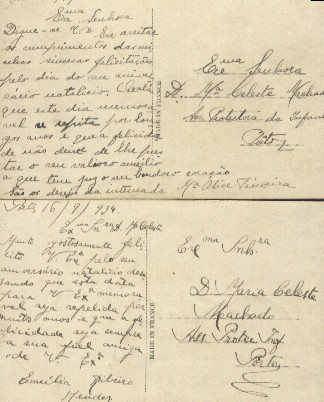 Exma
Exa Senhora
Digne-se V. Exa aceitar
os cumprimentos da mi-
nhas sinceras felicitações
pelo dia do seu aniver-
sário natalicio.
que este dia memora-
vel se repita por lon-
gos anos e que a felicida-
de não deixe de lhe pres-
tar o seu valoroso auxilio
a que tem jus o seu bondoso coração
são os desejos da
Ma Alice Teixeira
MADE IN FRANCE
Exma
Exa Senhora
D. Ma Celeste Machado
Ass. Protectora da
Porto
Porto 16/9/934
Exma Snra D. Ma Celeste
Muito gostosamente feli-
cito V. Exa pelo seu
aniversário natalicio dese-
jando que esta data
para V. Exa memora-
vel seja repetida por
muitos anos e que a fe-
licidade seja sempre
a sua fiel amiga
de V. Exa
Emilia Ribeiro
Mendes
MADE IN FRANCE
Exma Snra
D. Maria Celeste
Machado
Ass. Protec. Inf.
Porto